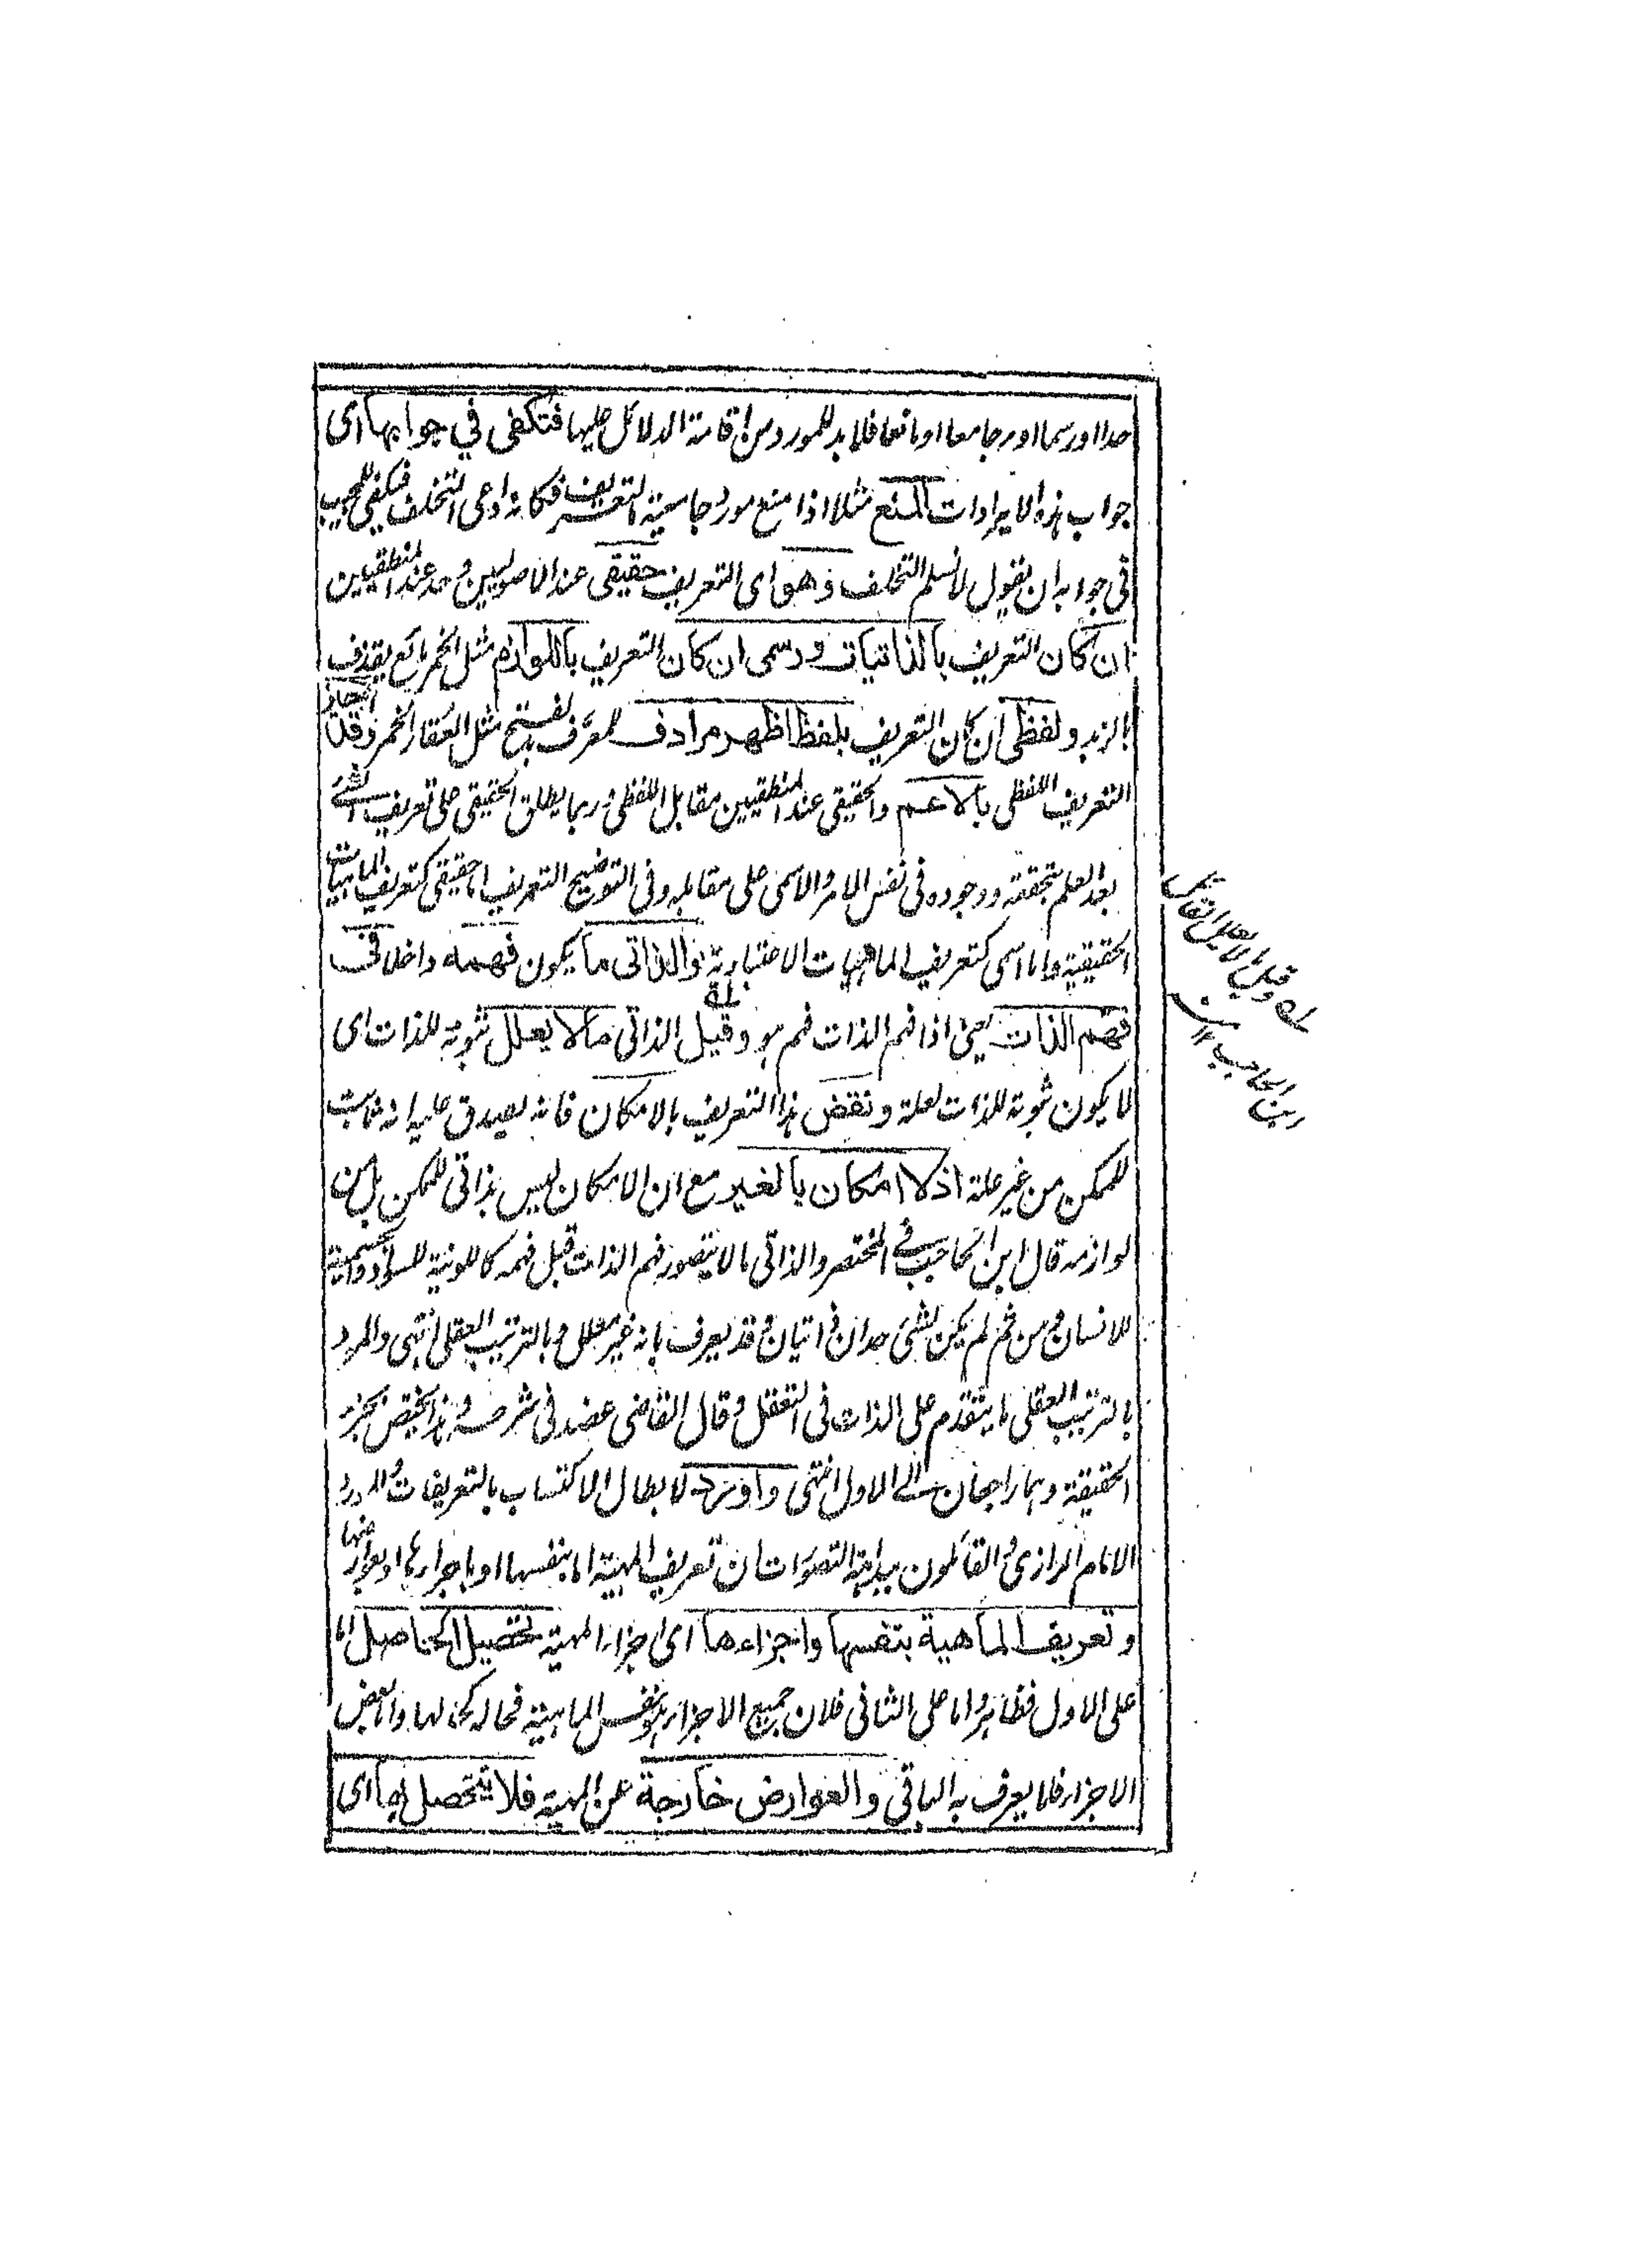 حدا او رسما او جامعا او مانعا فلا بد للمورد من اقامة الدلائل عليها فتكفى في جوابها اى
جواب هذه الايرادات المنع مثلا اذا منع مورد جامعية التعريف فكانه ادعى التخلف فيكفى للمجيب
فى جوابه ان يقول لا نسلم التخلف وهو اى التعريف حقيقى عند الاصوليين وحد عند المنطقيين
ان كان التعريف بالذاتيات ورسمى ان كان التعريف باللوازم مثل الخمر مائع يقذف
بالزبد ولفظى ان كان التعريف بلفظ اظهر مرادف للمعرَّف بفتح مثل العقار الخمر وقد اجاز
التعريف اللفظى بالاعم والحقيقى عند المنطقيين مقابل اللفظى وربما يطلق الحقيقى على تعريف الشئ
بعد العلم بتحققه ووجوده فى نفس الامر والاسمى على مقابله وفى التوضيح التعريف اما حقيقى كتعريف الماهيات
الحقيقية واما اسمى كتعريف الماهيات الاعتبارية والذاتى ما يكون فهمه داخلا فى
فهم الذات يعنى اذا فهم الذات فهم هو وقيل الذاتى ما لا يعلل ثبوته للذات اى
لا يكون ثبوته للذات لعلة ونقض هذا التعريف بالامكان فانه يصدق عليه انه ثابت
للممكن من غير علة اذ لا امكان بالغير مع ان الامكان ليس بذاتى للممكن بل من
لوازمه قال ابن الحاجب فى المختصر والذاتى ما لا يتصور فهم الذات قبل فهمه كاللونية للسواد والجسمية
للانسان ومن ثم لم يكن لشئ حدان ذاتيان وقد يعرف بانه غير معلل وبالترتيب العقلى انتهى والمراد
بالترتيب العقلى ما يتقدم على الذات فى التعقل وقال القاضى عضد فى شرحه وهذا يختص بجزء
الحقيقة وهما راجعان الى الاول انتهى واورد لابطال الاكتساب بالتعريفات والمورد
الامام الرازى والقائلون ببداهة التصورات ان تعريف المهية اما بنفسها او باجزائها او بعوارضها
وتعريف الماهية بنفسها واجزاءها اى اجزاء المهية تحصيل الحاصل اما
على الاول فظاهر واما على الثانى فلان جميع الاجزاء هو نفس الماهية فحاله كحالها واما بعض
الاجزاء فلا يعرف به الباقى والعوارض خارجة عن المهية فلا يتحصل بها اى
له وقيل ما لا يعلل القائل
ابن الحاجب ١٢ منه